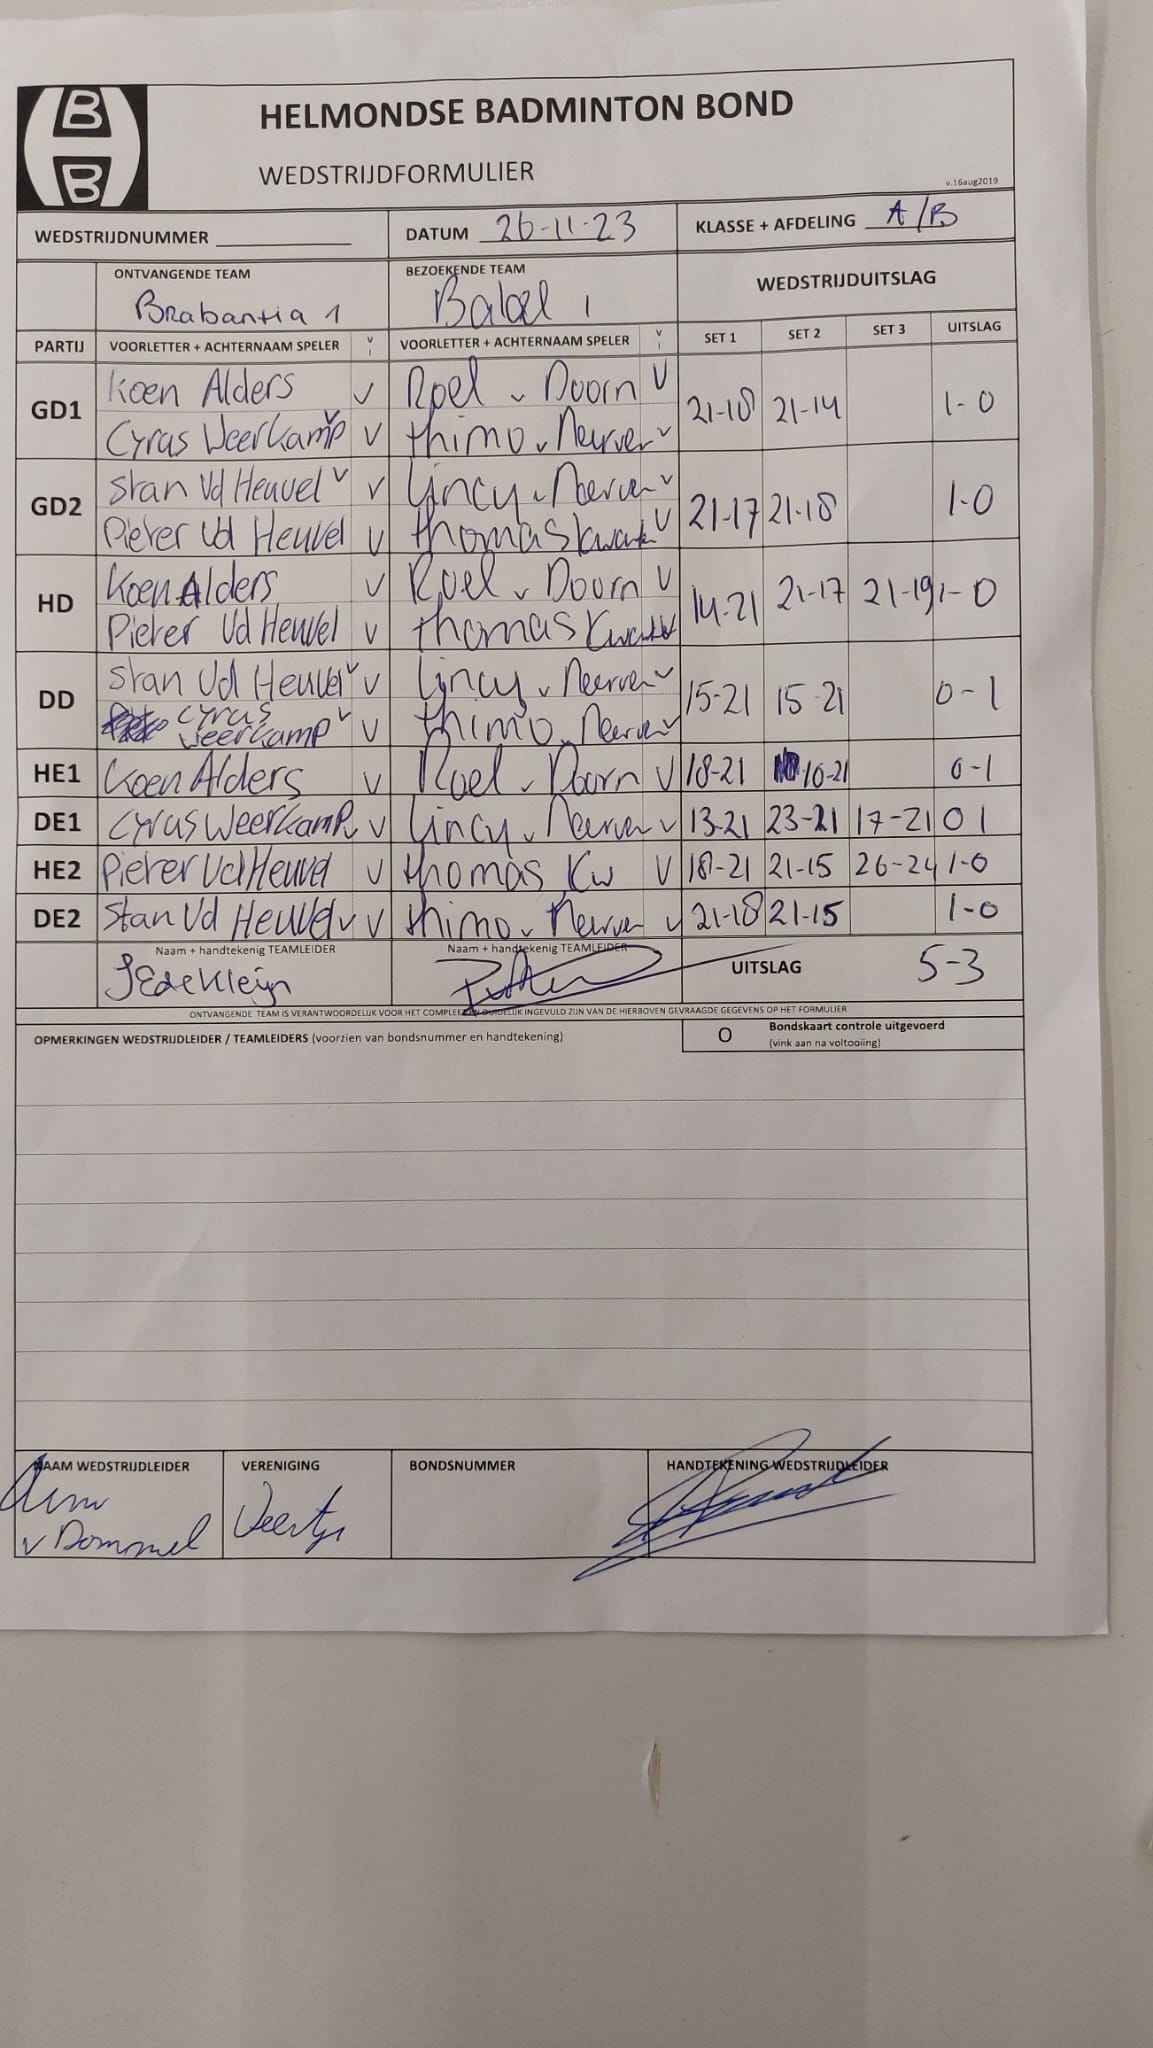 B
B
HELMONDSE BADMINTON BOND
WEDSTRIJDFORMULIER
v.16aug2019
WEDSTRIJDNUMMER DATUM 26-11-23 KLASSE + AFDELING A/B
ONTVANGENDE TEAM BEZOEKENDE TEAM WEDSTRIJDUITSLAG
Brabantia 1 Babel 1
PARTIJ VOORLETTER + ACHTERNAAM SPELER V VOORLETTER + ACHTERNAAM SPELER V SET 1 SET 2 SET 3 UITSLAG
GD1 Koen Alders v Roel v Doorn v 21-18 21-14 1-0
Cyras Weerkamp v v thimo v Neerven v
GD2 Stan Vd Heuvel v v Lincy v Neerven v 21-17 21-18 1-0
Pieter Vd Heuvel v thomas v
HD Koen Alders v Roel v Doorn v 14-21 21-17 21-19 1-0
Pieter Vd Heuvel v thomas
DD Stan Vd Heuvel v v Lincy v Neerven v 15-21 15-21 0-1
Cyras Weerkamp v v thimo v Neerven v
HE1 Koen Alders v Roel v Doorn v 18-21 10-21 0-1
DE1 Cyras Weerkamp v v Lincy v Neerven v 13-21 23-21 17-21 0 1
HE2 Pieter Vd Heuvel v thomas Kw v 18-21 21-15 26-24 1-0
DE2 Stan Vd Heuvel v v thimo v Neerven v 21-18 21-15 1-0
Naam + handtekenig TEAMLEIDER Naam + handtekenig TEAMLEIDER UITSLAG 5-3
ONTVANGENDE TEAM IS VERANTWOORDELIJK VOOR HET COMPLEET EN DUIDELIJK INGEVULD ZIJN VAN DE HIERBOVEN GEVRAAGDE GEGEVENS OP HET FORMULIER
OPMERKINGEN WEDSTRIJDLEIDER / TEAMLEIDERS (voorzien van bondsnummer en handtekening) O Bondskaart controle uitgevoerd
(vink aan na voltooiing)
NAAM WEDSTRIJDLEIDER VERENIGING BONDSNUMMER HANDTEKENING WEDSTRIJDLEIDER
v Dommel